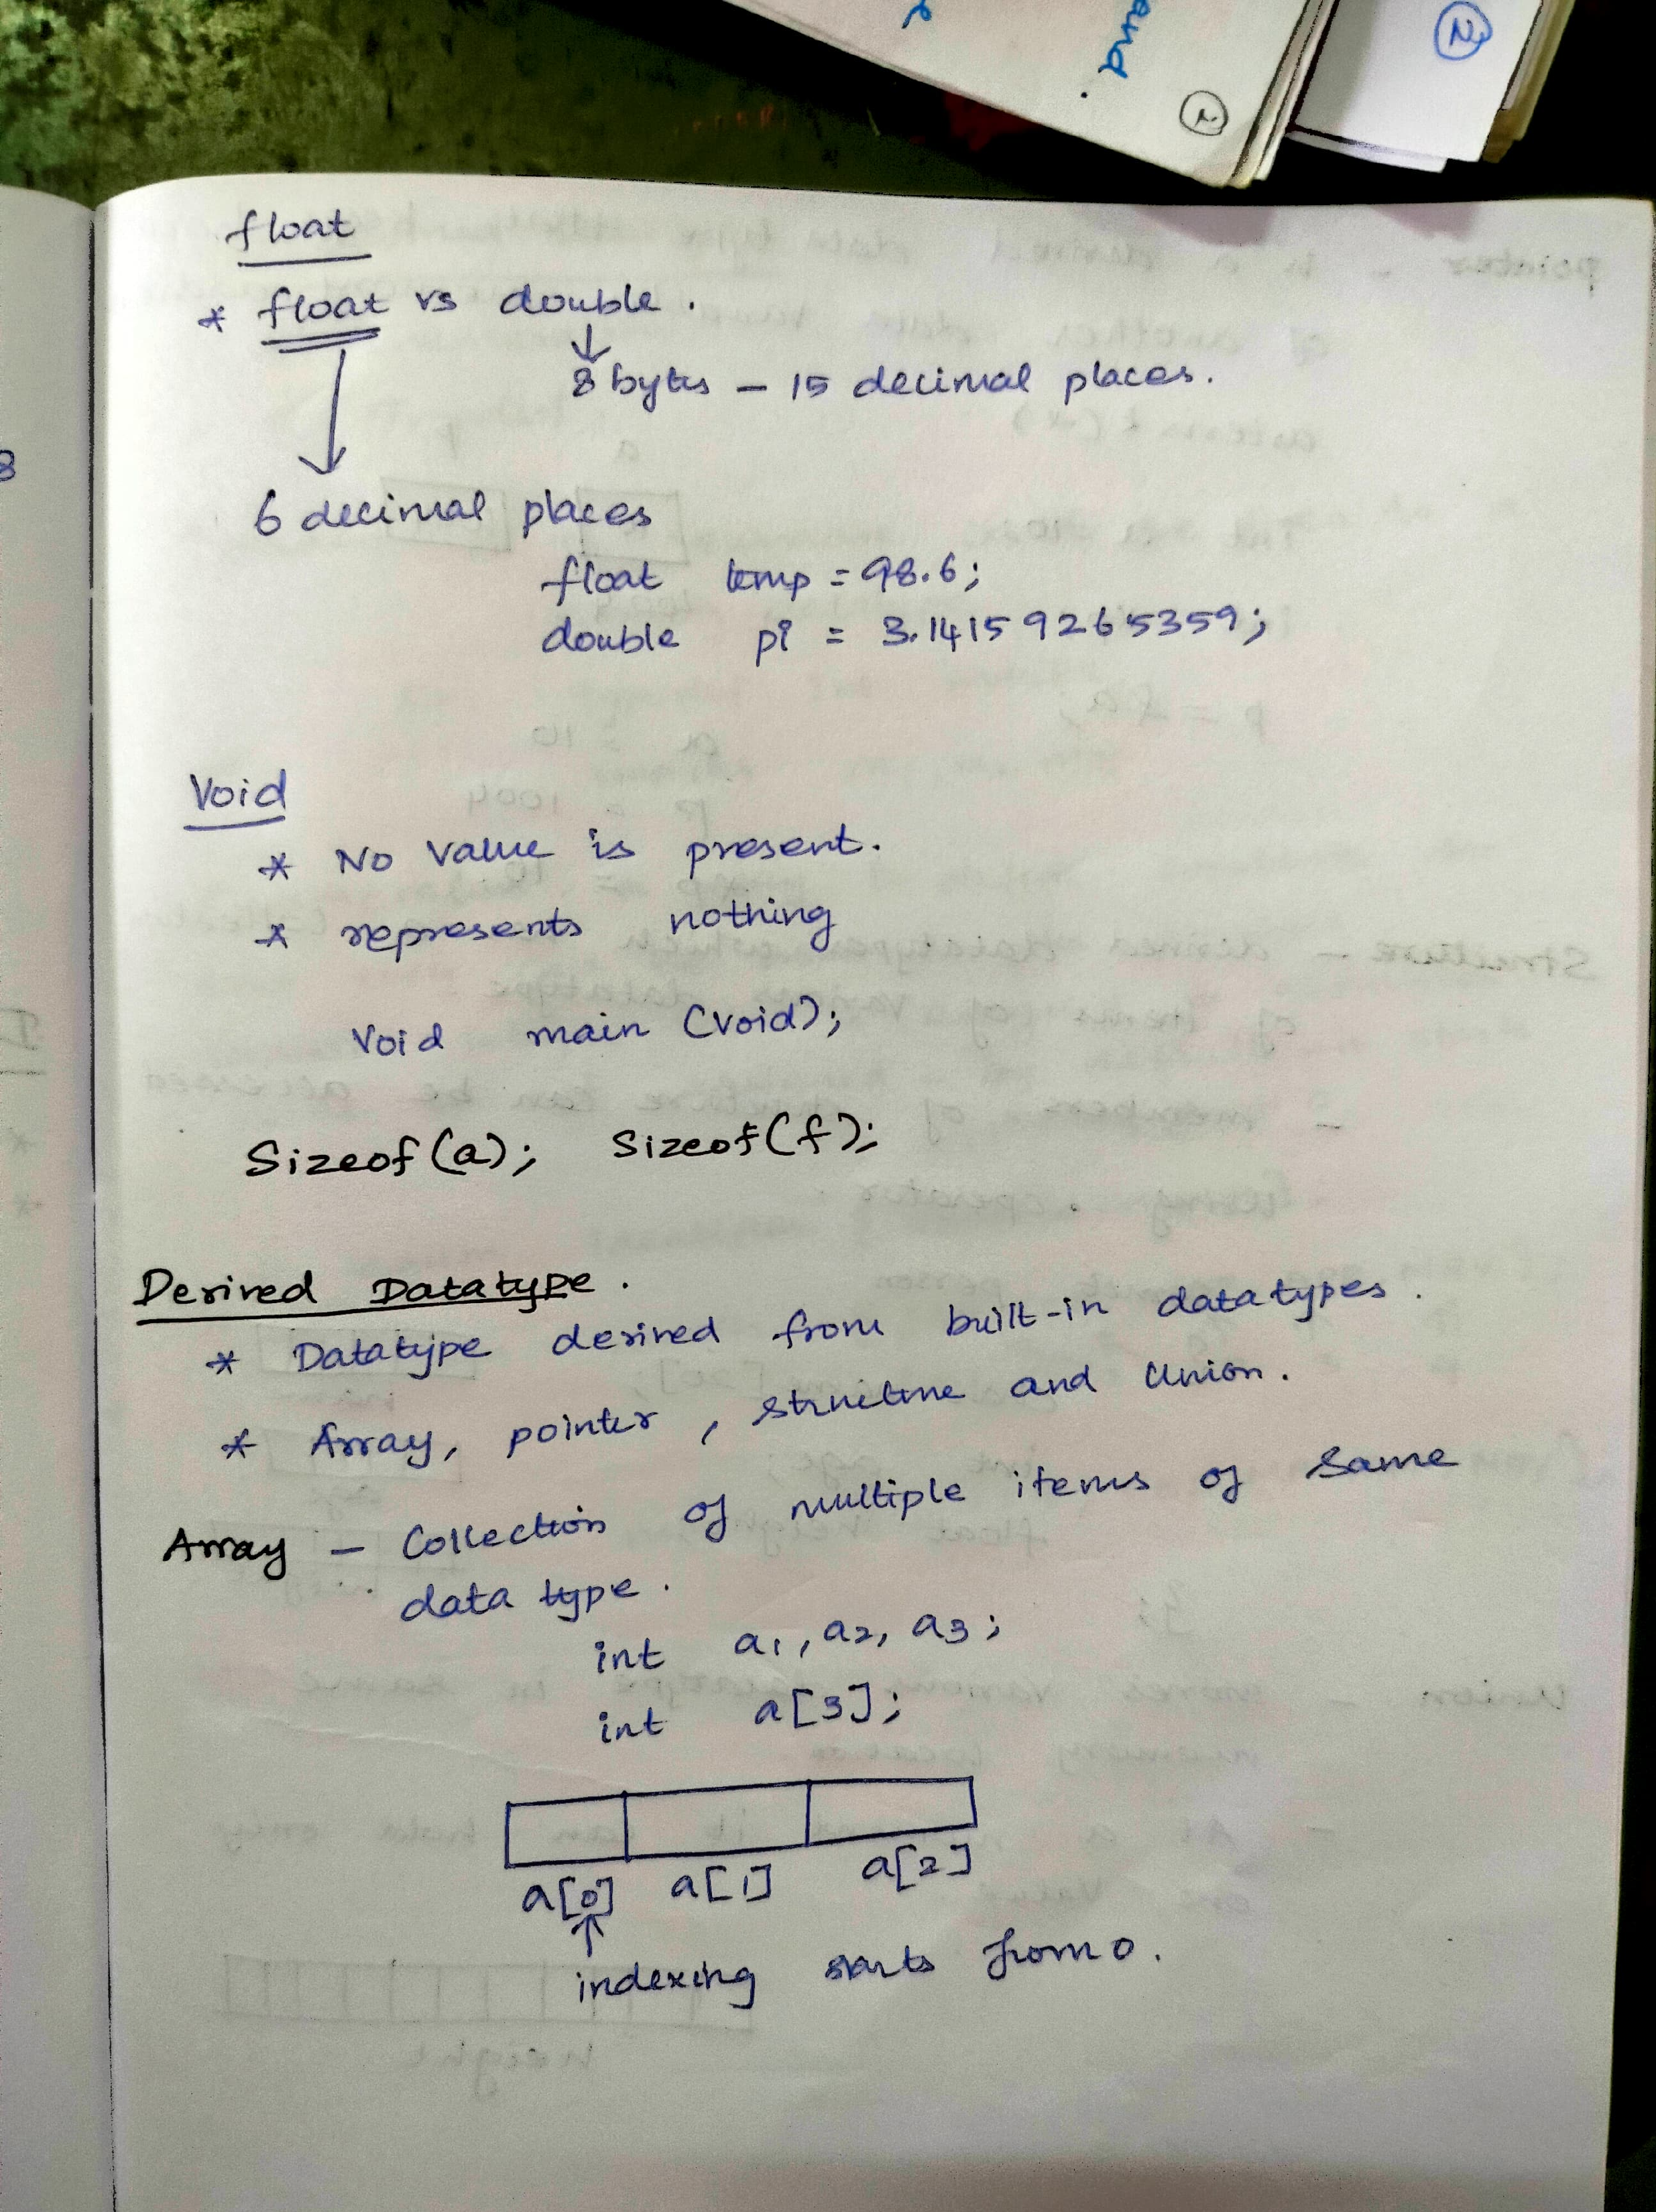 and.
2
2
8
float
* float vs double.
↓
8 bytes - 15 decimal places.
6 decimal places
float temp = 98.6;
double pi = 3.14159265359;
Void
* No Value is present.
* represents nothing
Void main (void);
Sizeof(a); Sizeof(f);
Derived Datatype.
* Datatype derived from built-in datatypes.
* Array, pointer, structure and Union.
Array - Collection of multiple items of same
data type.
int a1, a2, a3;
int a[3];
a[0] a[1] a[2]
↑
indexing starts from 0.